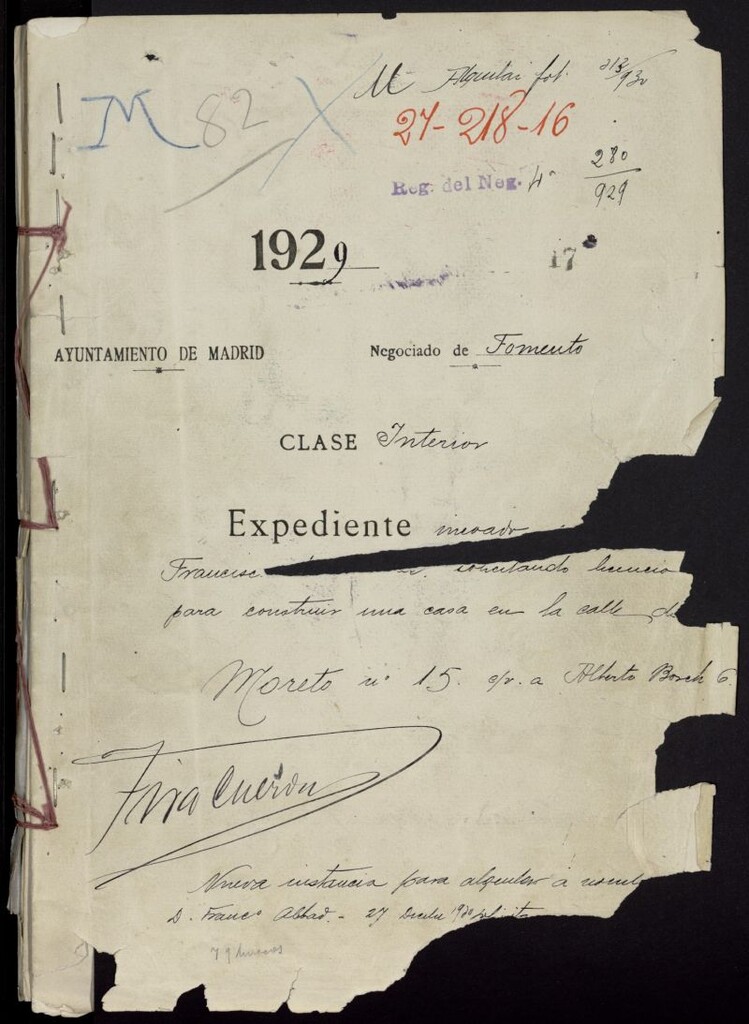 M 82 M Alquilar fol. 213/930
27-218-16
Reg. del Neg. 4º 280/929
1929 17
AYUNTAMIENTO DE MADRID Negociado de Fomento
CLASE Interior
Expediente incoado
Francisc solicitando licencia
para construir una casa en la calle de
Moreto nº 15. c/v. a Alberto Bosch 6
Nueva instancia para alquilar a nomb
D. Francº Abbad. - 27 Dicbre 1930